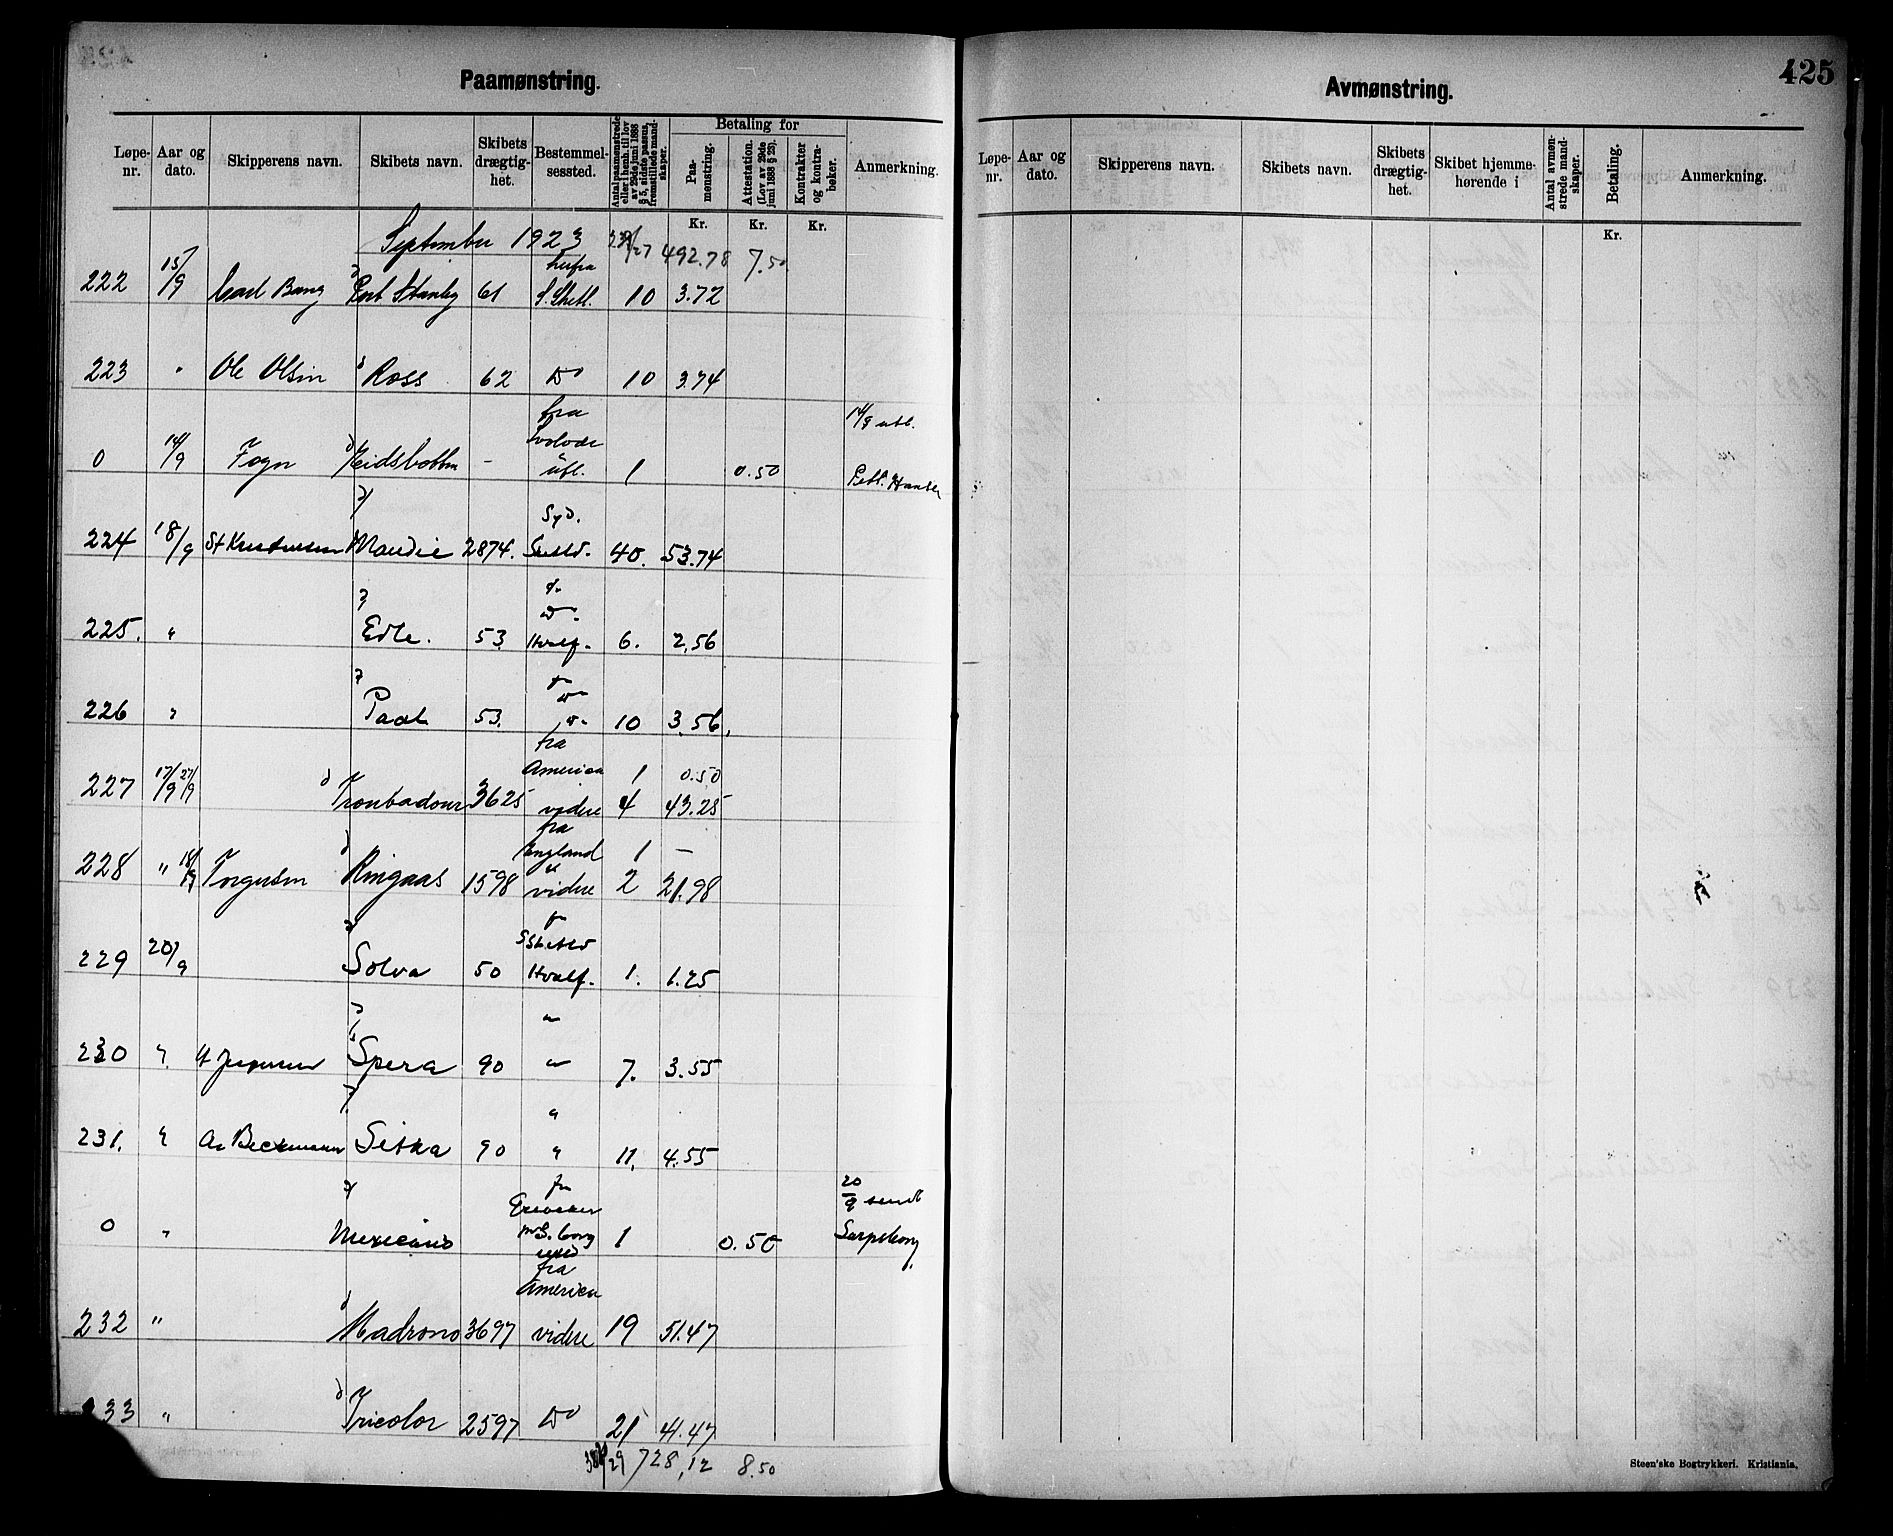 Paamønstring.
Løpe-nr. Aar og dato. Skipperens navn. Skibets navn. Skibets drægtig-het. Bestemmel-sessted. Antal paamønstrede eller i henh. til lov av 29de juni 1888 § 5, sidste passus, fremstillede mand-skaper. Betaling for Paa-mønstring. Attestation. (Lov av 29de juni 1888 § 25). Kontrakter og kontra-bøker. Anmerkning.
Kr. Kr. Kr.
September 1923 492.78 7.50
222 15/9 Carl Bang Port Stanley 61 S. Shetl. 10 3.72
223 " Ole Olsen Ross 62 Do 10 3.74
0 14/9 Fogn Eidsbotten - fra utl. 1 0.50 14/9 utb.
224 18/9 Maudie 2874. Syd. 40. 53.74
225. " Edle. 53 Do. Hvalf. 6. 2.56
226 " Paal 53. 10 3.56.
227 17/9 27/9 Troubadour 3625 fra America 1 0.50
videre 4 43.25
228 " 18/9 Torgersen Ringaas 1598 fra England 1 —
videre 2 21.98
229 20/9 Solva 50 Hvalf. 1. 1.25
230 " Spera 90 " 7. 3.55
231. " A. Beckmann Sitka 90 " 11. 4.55
0 " Mexicano 1 0.50 20/9 sendt Sarpsborg
232 " Madrono 3697 fra America videre 19 51.47
233 " Tricolor 2597 Do 21 41.47
728,12 8.50
425
Avmønstring.
Løpe-nr. Aar og dato. Skipperens navn. Skibets navn. Skibets drægtig-het. Skibet hjemme-hørende i Antal avmøn-strede mand-skaper. Betaling. Anmerkning.
Kr.
Steen'ske Bogtrykkeri. Kristiania.